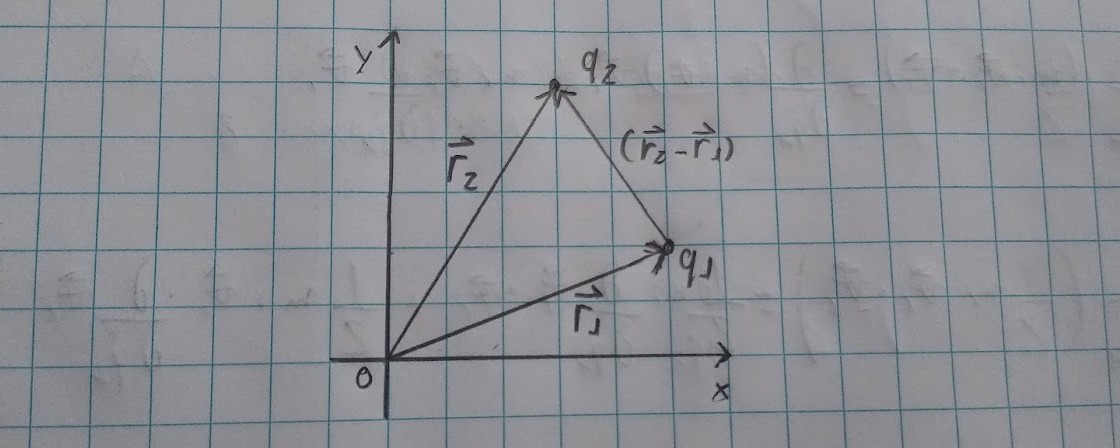 y
q₂
r⃗₂
(r⃗₂ - r⃗₁)
q₁
r⃗₁
0
x